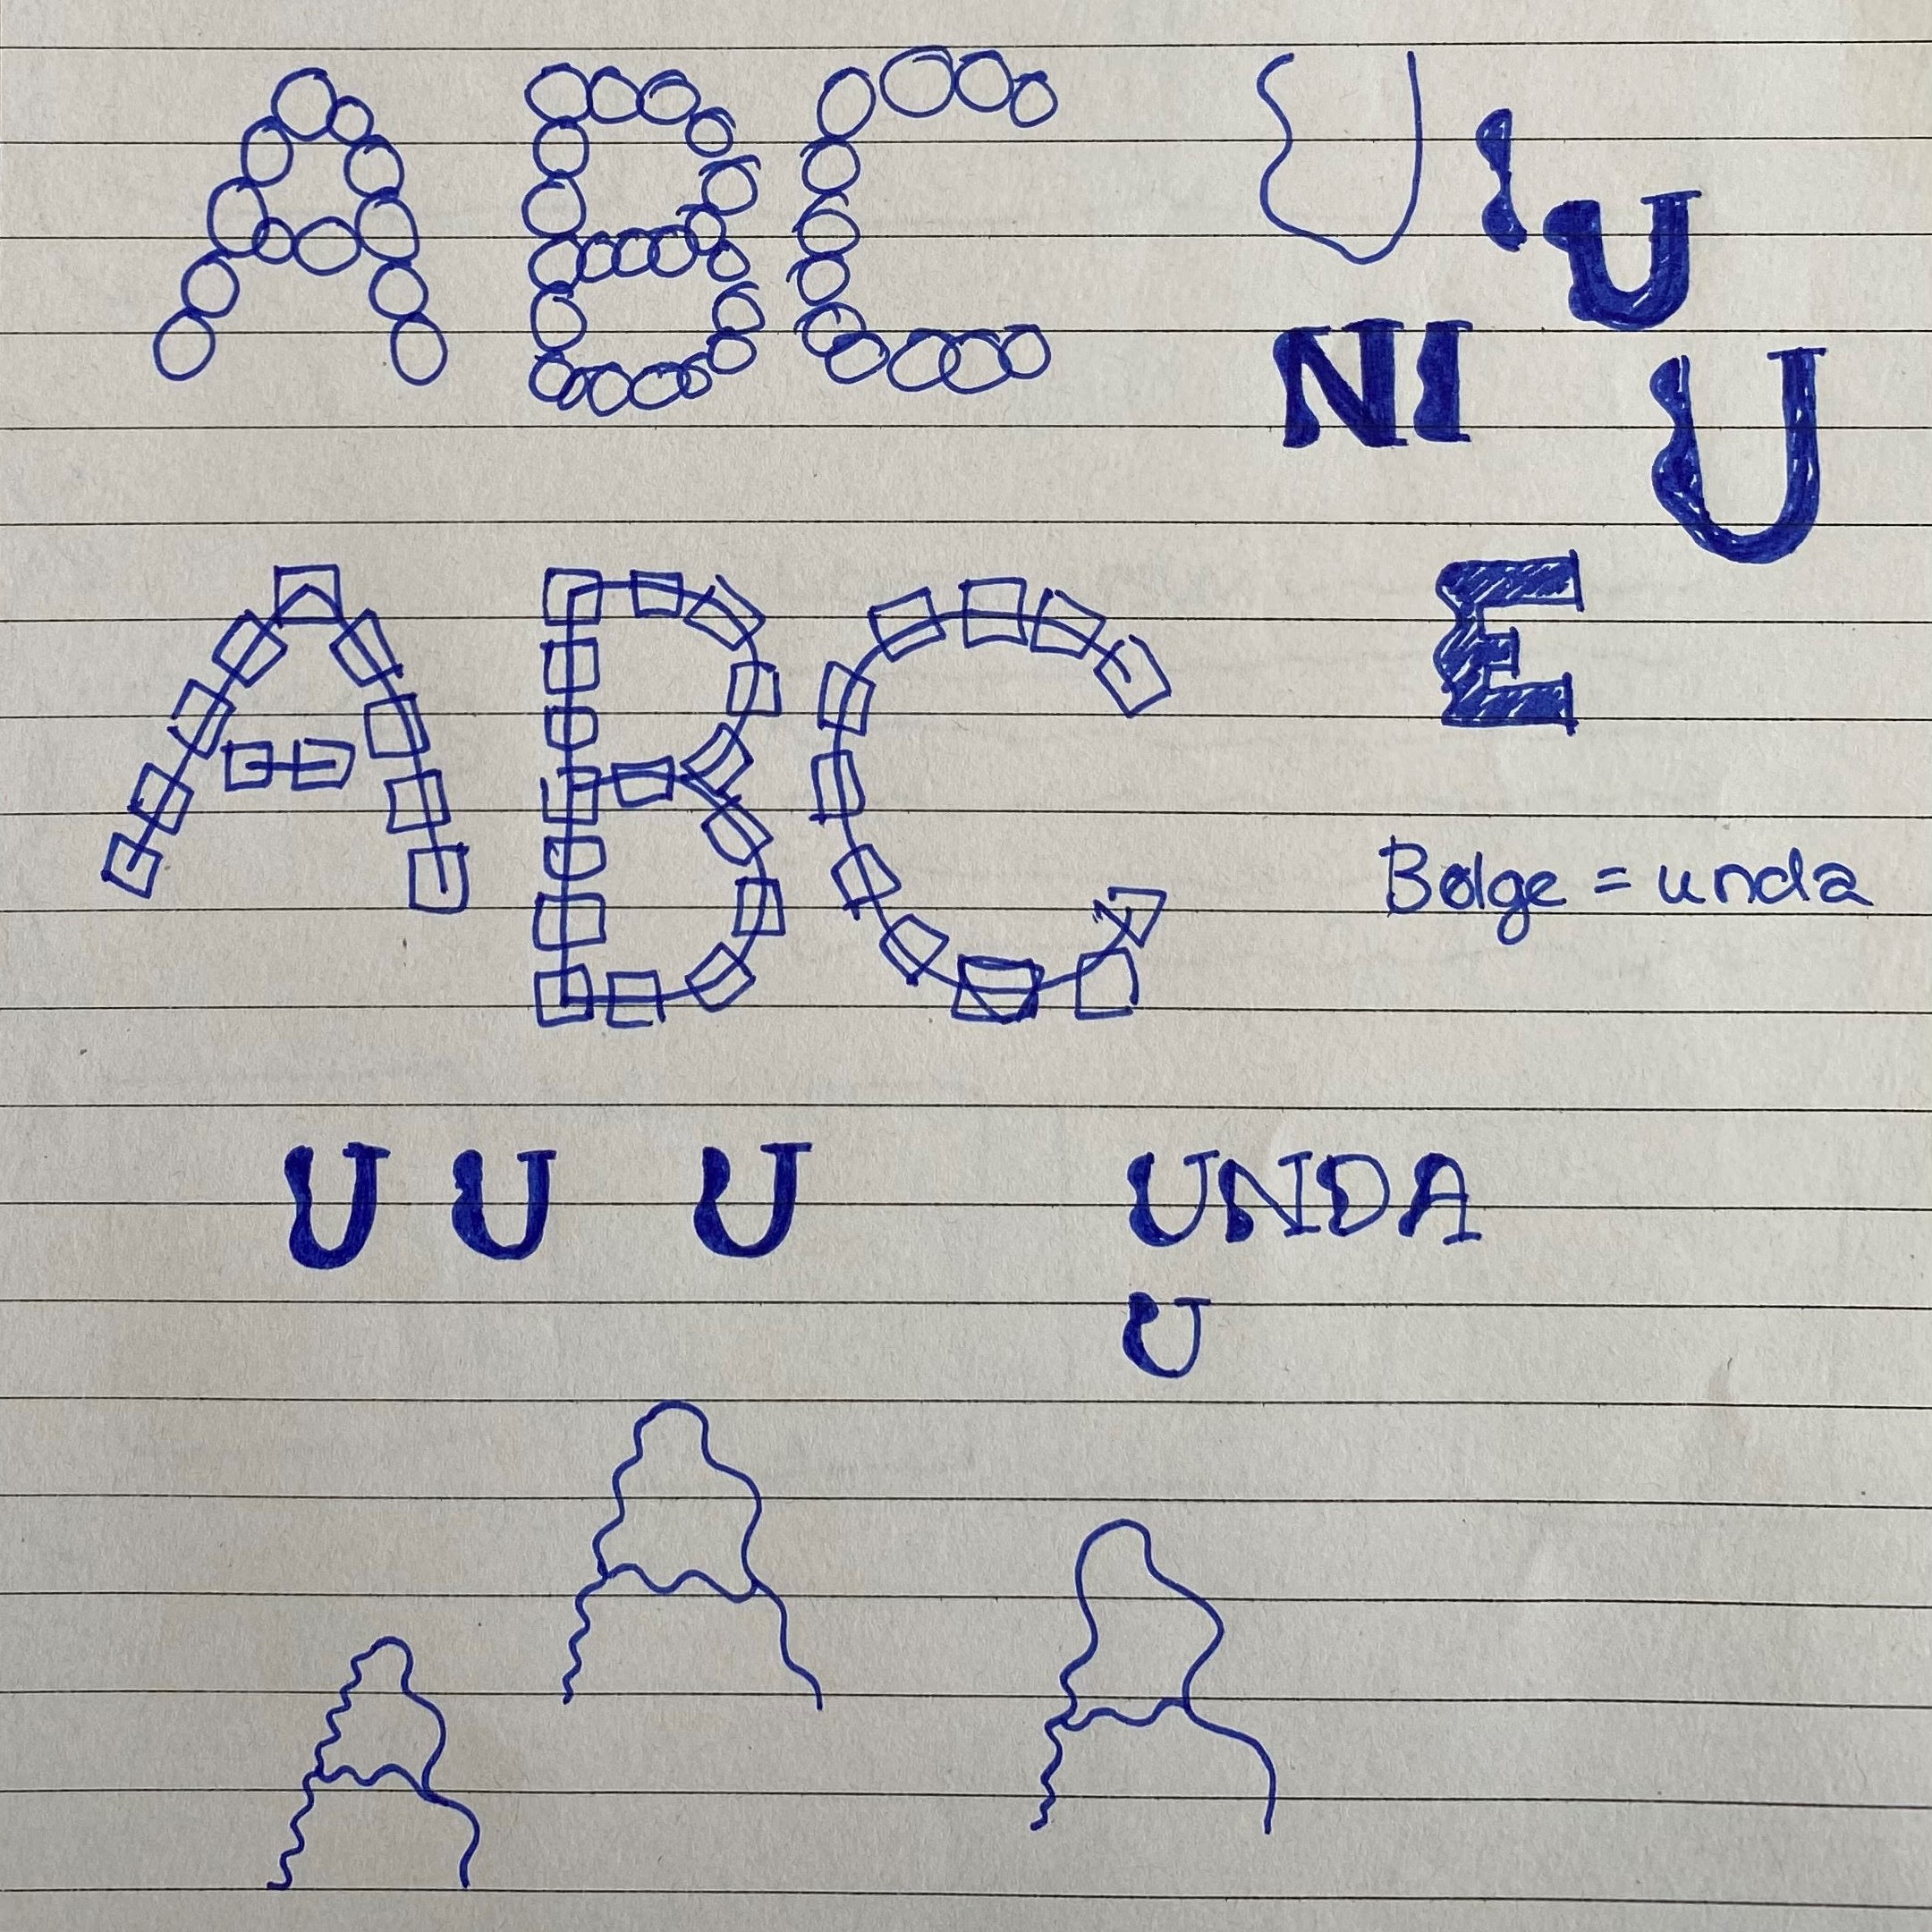 ABC
U I U
NI U
ABC
E
Bølge = unda
U U U
UNDA
U
A
A
A